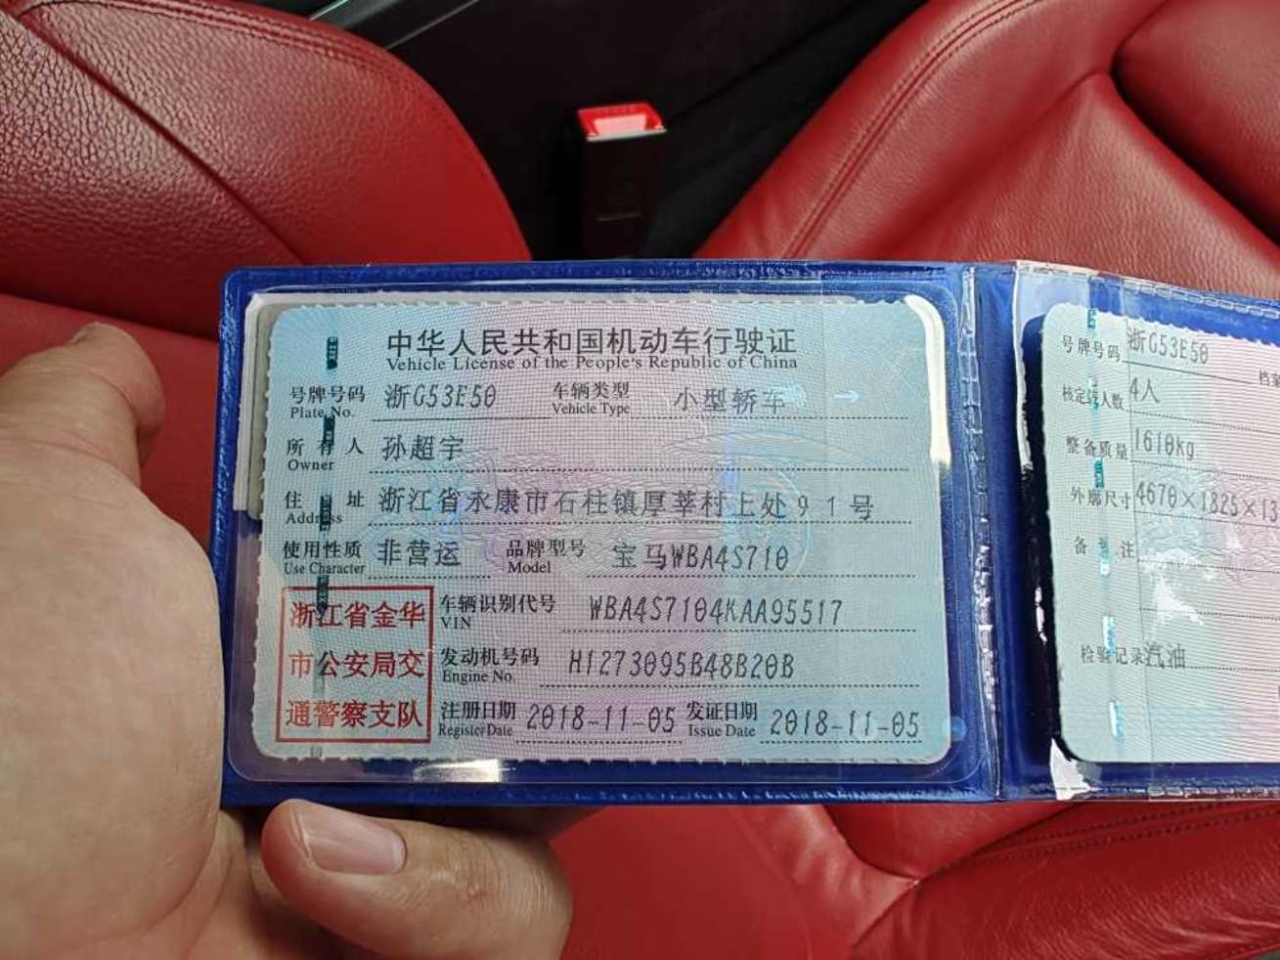 中华人民共和国机动车行驶证
Vehicle License of the People's Republic of China
号牌号码 浙G53E50 车辆类型 小型轿车
Plate No. Vehicle Type
所有人 孙超宇
Owner
住址 浙江省永康市石柱镇厚莘村上处91号
Address
使用性质 非营运 品牌型号 宝马WBA4S710
Use Character Model
浙江省金华
市公安局交
通警察支队
车辆识别代号 WBA4S7104KAA95517
VIN
发动机号码 H1273095B48B20B
Engine No.
注册日期 2018-11-05 发证日期 2018-11-05
Register Date Issue Date
号牌号码 浙G53E50 档案
核定载人数 4人
整备质量 1610kg
外廓尺寸 4670×1825×13
备注
检验记录 汽油